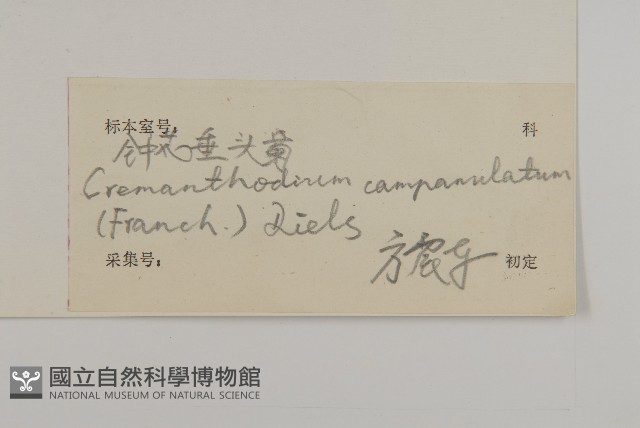 标本室号：
科
钟花垂头菊
Cremanthodium campanulatum
(Franch.) Diels
采集号：
方震东
初定
國立自然科學博物館
NATIONAL MUSEUM OF NATURAL SCIENCE